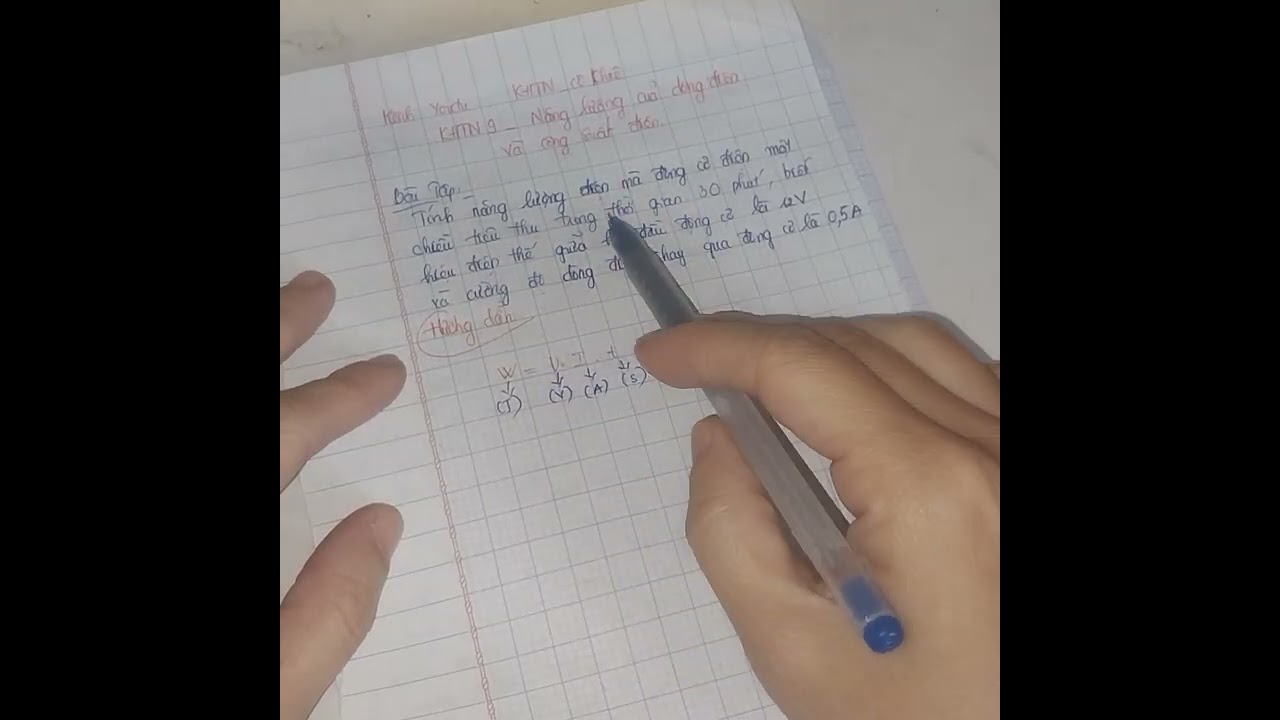 Kênh Youtu KHTN cô Khuê
KHTN 9 - Năng lượng của dòng điện
và công suất điện.
Bài tập
Tính năng lượng điện mà động cơ điện một
chiều tiêu thụ trong thời gian 30 phút, biết
hiệu điện thế giữa đầu động cơ là 12V
và cường độ dòng chạy qua động cơ là 0,5A
Hướng dẫn
W = U. I . t
(J) (V) (A) (s)